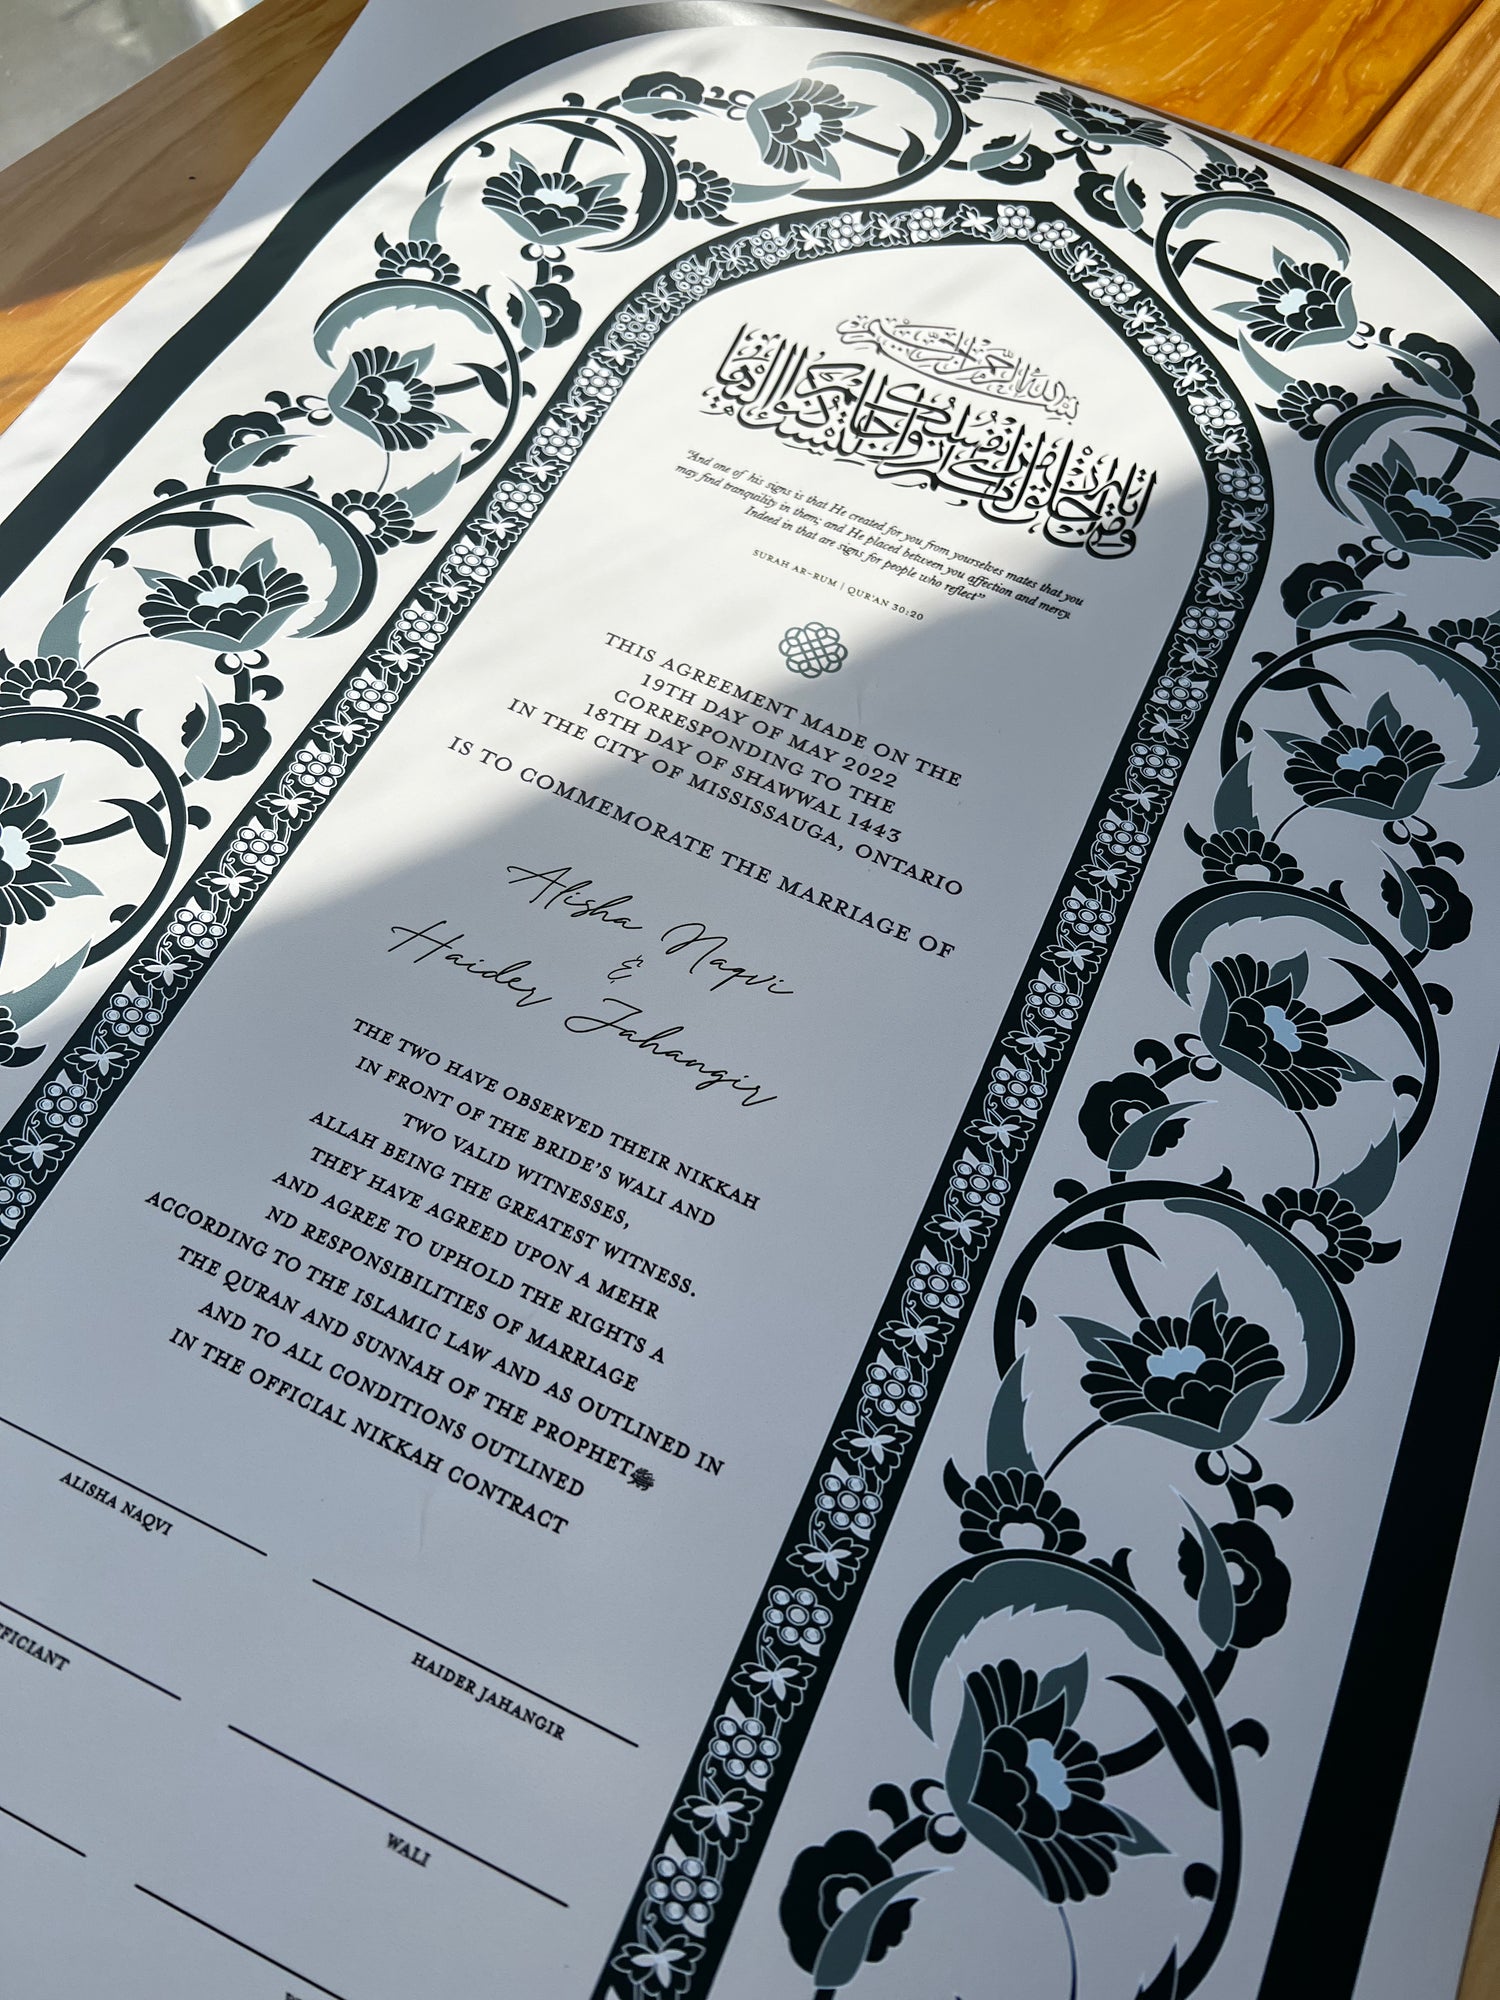 بسم الله الرحمن الرحيم
ومن آياته أن خلق لكم من أنفسكم أزواجا لتسكنوا إليها
"And one of his signs is that He created for you from yourselves mates that you
may find tranquility in them; and He placed between you affection and mercy.
Indeed in that are signs for people who reflect"
SURAH AR-RUM | QUR'AN 30:20
THIS AGREEMENT MADE ON THE
19TH DAY OF MAY 2022
CORRESPONDING TO THE
18TH DAY OF SHAWWAL 1443
IN THE CITY OF MISSISSAUGA, ONTARIO
IS TO COMMEMORATE THE MARRIAGE OF
Alisha Naqvi
&
Haider Jahangir
THE TWO HAVE OBSERVED THEIR NIKKAH
IN FRONT OF THE BRIDE'S WALI AND
TWO VALID WITNESSES,
ALLAH BEING THE GREATEST WITNESS.
THEY HAVE AGREED UPON A MEHR
AND AGREE TO UPHOLD THE RIGHTS A
ND RESPONSIBILITIES OF MARRIAGE
ACCORDING TO THE ISLAMIC LAW AND AS OUTLINED IN
THE QURAN AND SUNNAH OF THE PROPHET ﷺ
AND TO ALL CONDITIONS OUTLINED
IN THE OFFICIAL NIKKAH CONTRACT
ALISHA NAQVI
HAIDER JAHANGIR
FICIANT
WALI